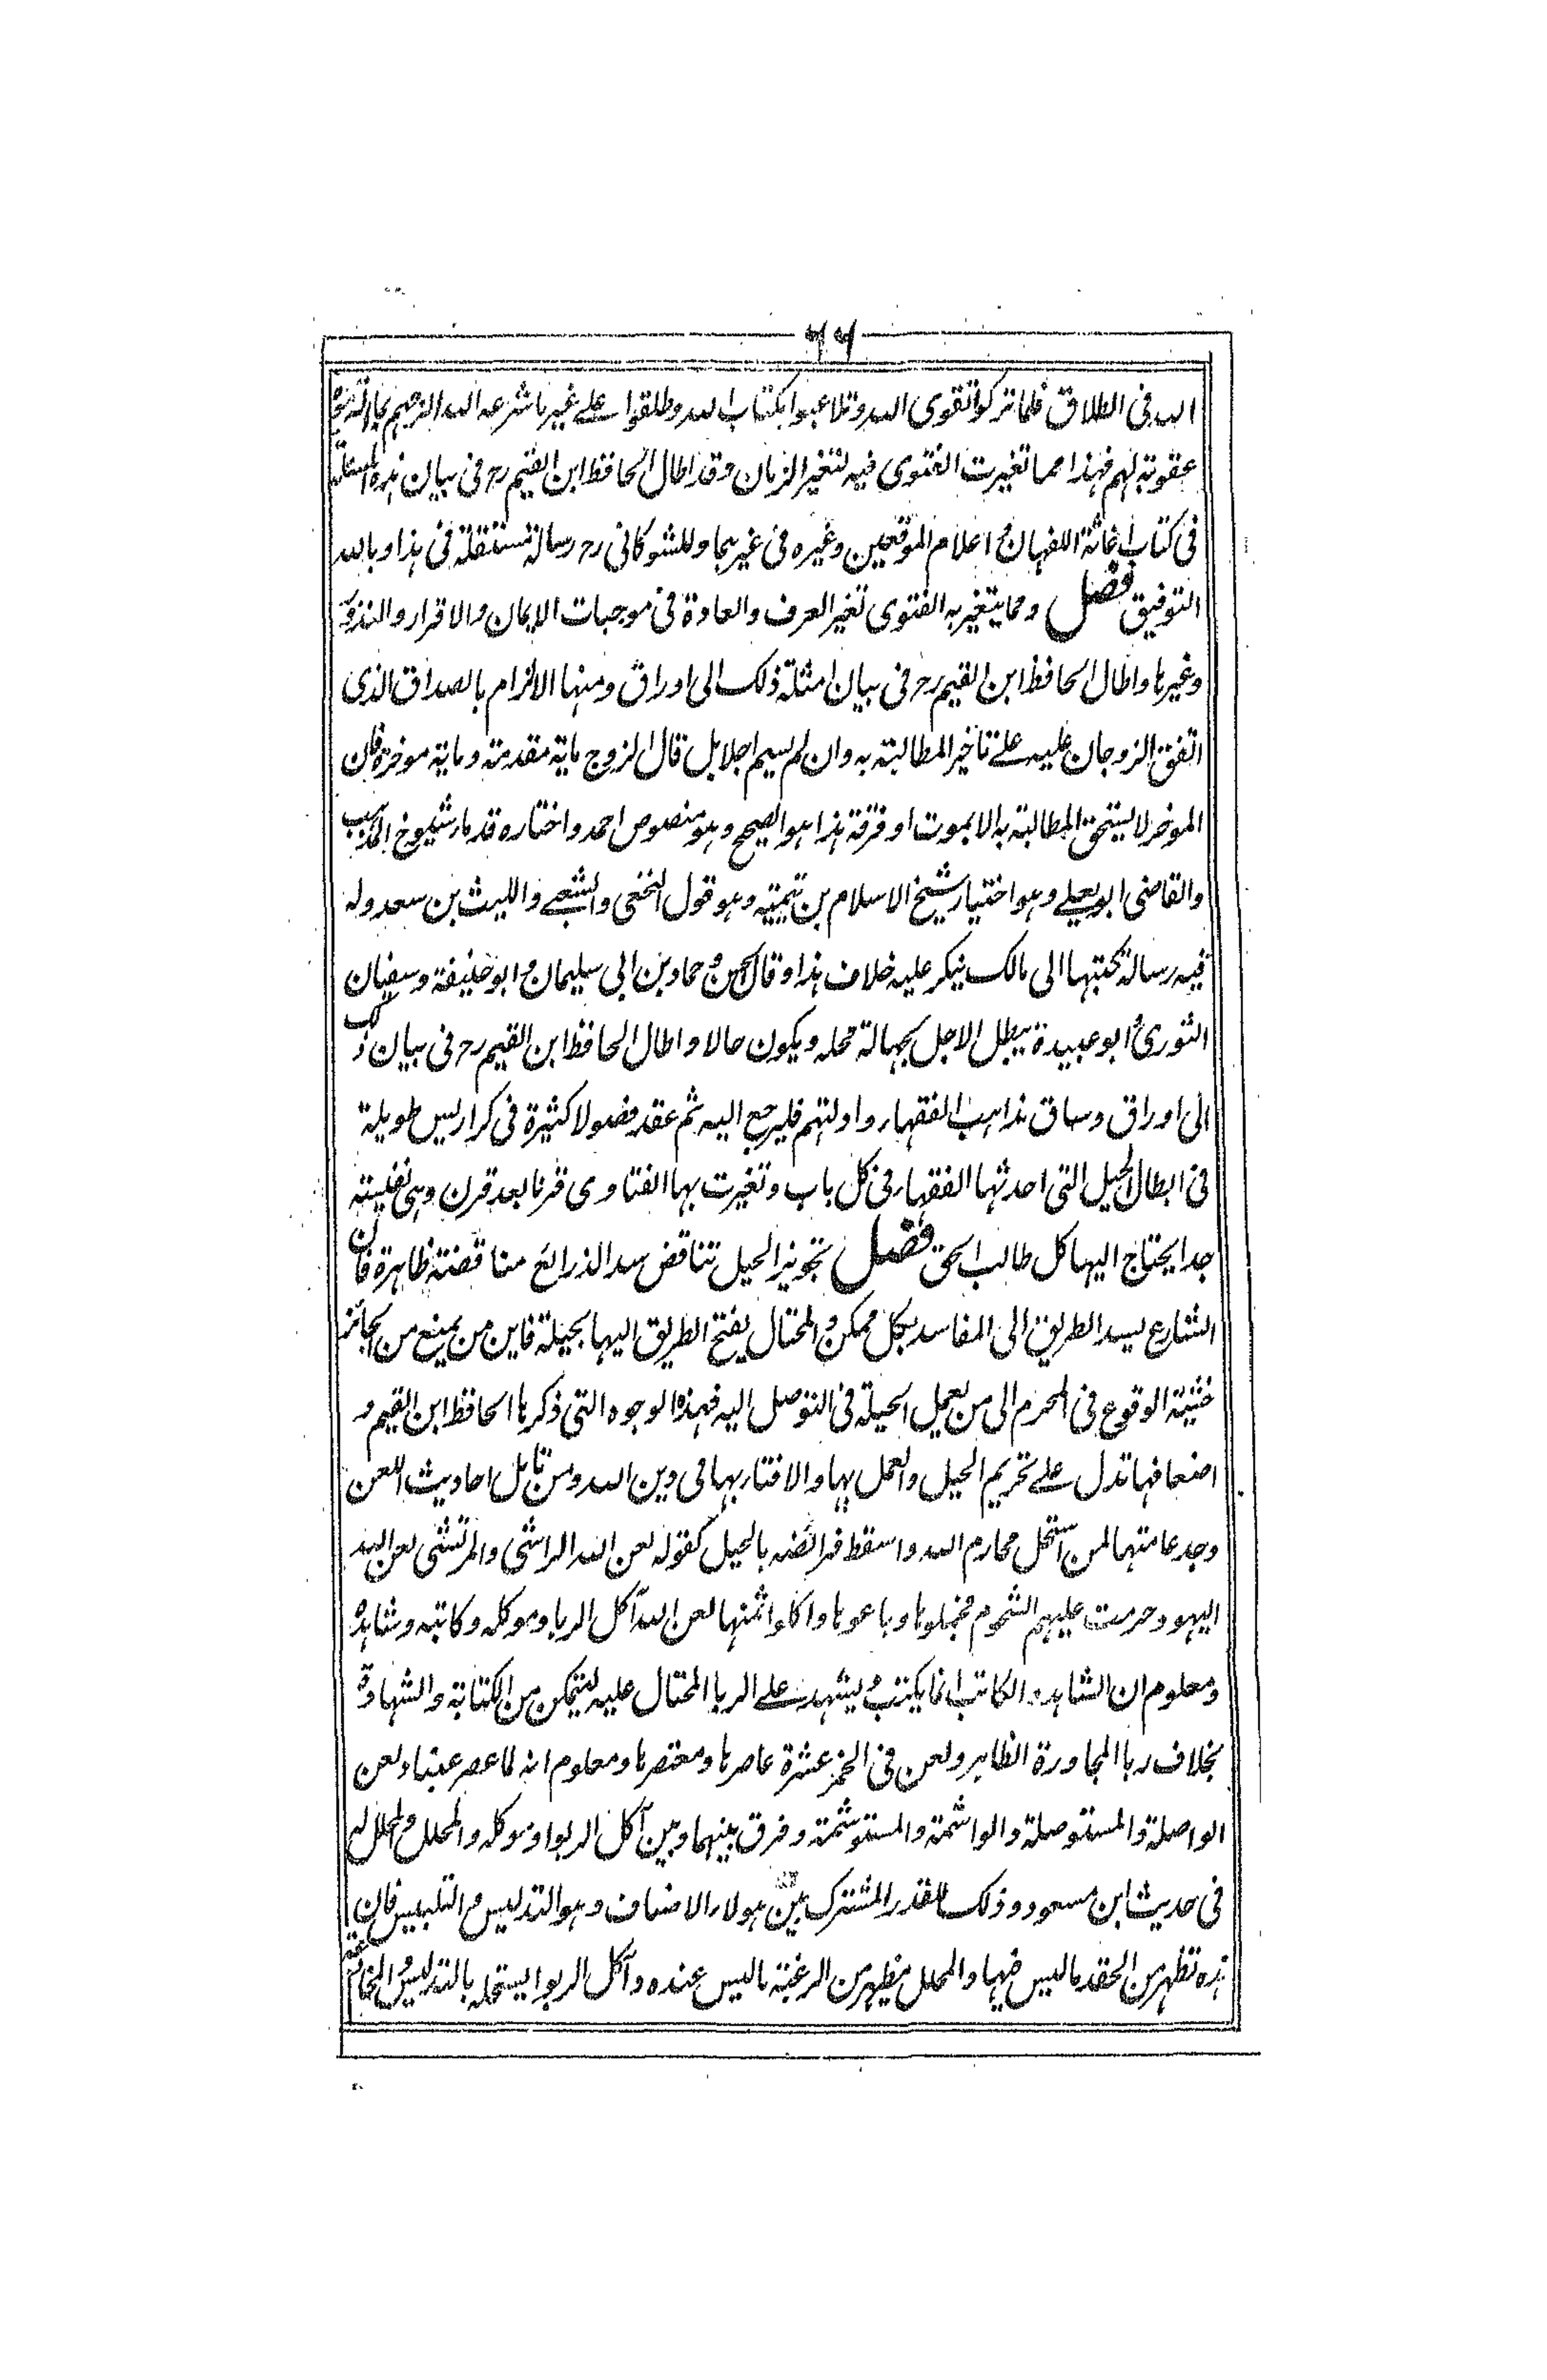 ٦٦
الله فى الطلاق فلما تركوا تقوى الله وتلاعبوا بكتاب الله وطلقوا على غير ما شرعه الله الزمهم بما التزموه
عقوبة لهم فهذا مما تغيرت الفتوى فيه لتغير الزمان وقد اطال الحافظ ابن القيم رح فى بيان هذه المسئلة
فى كتاب اغاثة اللفهان و اعلام الموقعين وغيره فى غيرهما وللشوكانى رح رسالة مستقلة فى هذا وبالله
التوفيق فصل ومما يتغير به الفتوى تغير العرف والعادة فى موجبات الايمان والاقرار والنذور
وغيرها واطال الحافظ ابن القيم رح فى بيان امثلة ذلك الى اوراق ومنها الالزام بالصداق الذى
اتفق الزوجان عليه على تاخير المطالبة به وان لم يسم اجلا بل قال الزوج ماية مقدمة وماية موخرة فان
الموخر لا يستحق المطالبة به الا بموت او فرقة هذا هو الصحيح وهو منصوص احمد واختاره قدماء شيوخ المذهب
والقاضى ابو يعلى وهو اختيار شيخ الاسلام بن تيمية وهو قول النخعى والشعبى والليث بن سعد وله
فيه رسالة كتبها الى مالك ينكر عليه خلاف هذا وقال الحسن و حماد بن ابى سليمان و ابو حنيفة وسفيان
الثورى و ابو عبيدة يبطل الاجل لجهالة محله ويكون حالا واطال الحافظ ابن القيم رح فى بيان ذلك
الى اوراق وساق مذاهب الفقهاء وادلتهم فليرجع اليه ثم عقد فصولا كثيرة فى كراريس طويلة
فى ابطال الحيل التى احدثها الفقهاء فى كل باب وتغيرت بها الفتاوى قرنا بعد قرن وهى نفيسة
جدا يحتاج اليها كل طالب الحق فصل تجويز الحيل تناقض سد الذرائع مناقضة ظاهرة فان
الشارع يسد الطريق الى المفاسد بكل ممكن و المحتال يفتح الطريق اليها بحيلة فاين من يمنع من الجائز
خشية الوقوع فى المحرم الى من يعمل الحيلة فى التوصل اليه فهذه الوجوه التى ذكرها الحافظ ابن القيم و
اضعافها تدل على تحريم الحيل والعمل بها والافتاء بها فى دين الله ومن تامل احاديث اللعن
وجد عامتها لمن استحل محارم الله واسقط فرائضه بالحيل كقوله لعن الله الراشى والمرتشى لعن الله
اليهود حرمت عليهم الشحوم فجملوها وباعوها واكلوا ثمنها لعن الله آكل الربا وموكله وكاتبه وشاهده
ومعلوم ان الشاهد و الكاتب انما يكتب و يشهد على الربا المحتال عليه ليتمكن من الكتابة والشهادة
بخلاف ربا المجاورة الظاهر ولعن فى الخمر عشرة عاصرها ومعتصرها ومعلوم انه لما عصر عنبا ولعن
الواصلة والمستوصلة والواشمة والمستوشمة وفرق بينهما وبين آكل الربوا وموكله والمحلل والمحلل له
فى حديث ابن مسعود وذلك للقدر المشترك بين هولاء الاصناف وهو التدليس و التلبيس فان
هذه تظهر من الحقد ما ليس فيها والمحلل يظهر من الرغبة ما ليس عنده وآكل الربوا يستحله بالتدليس و المخادعة